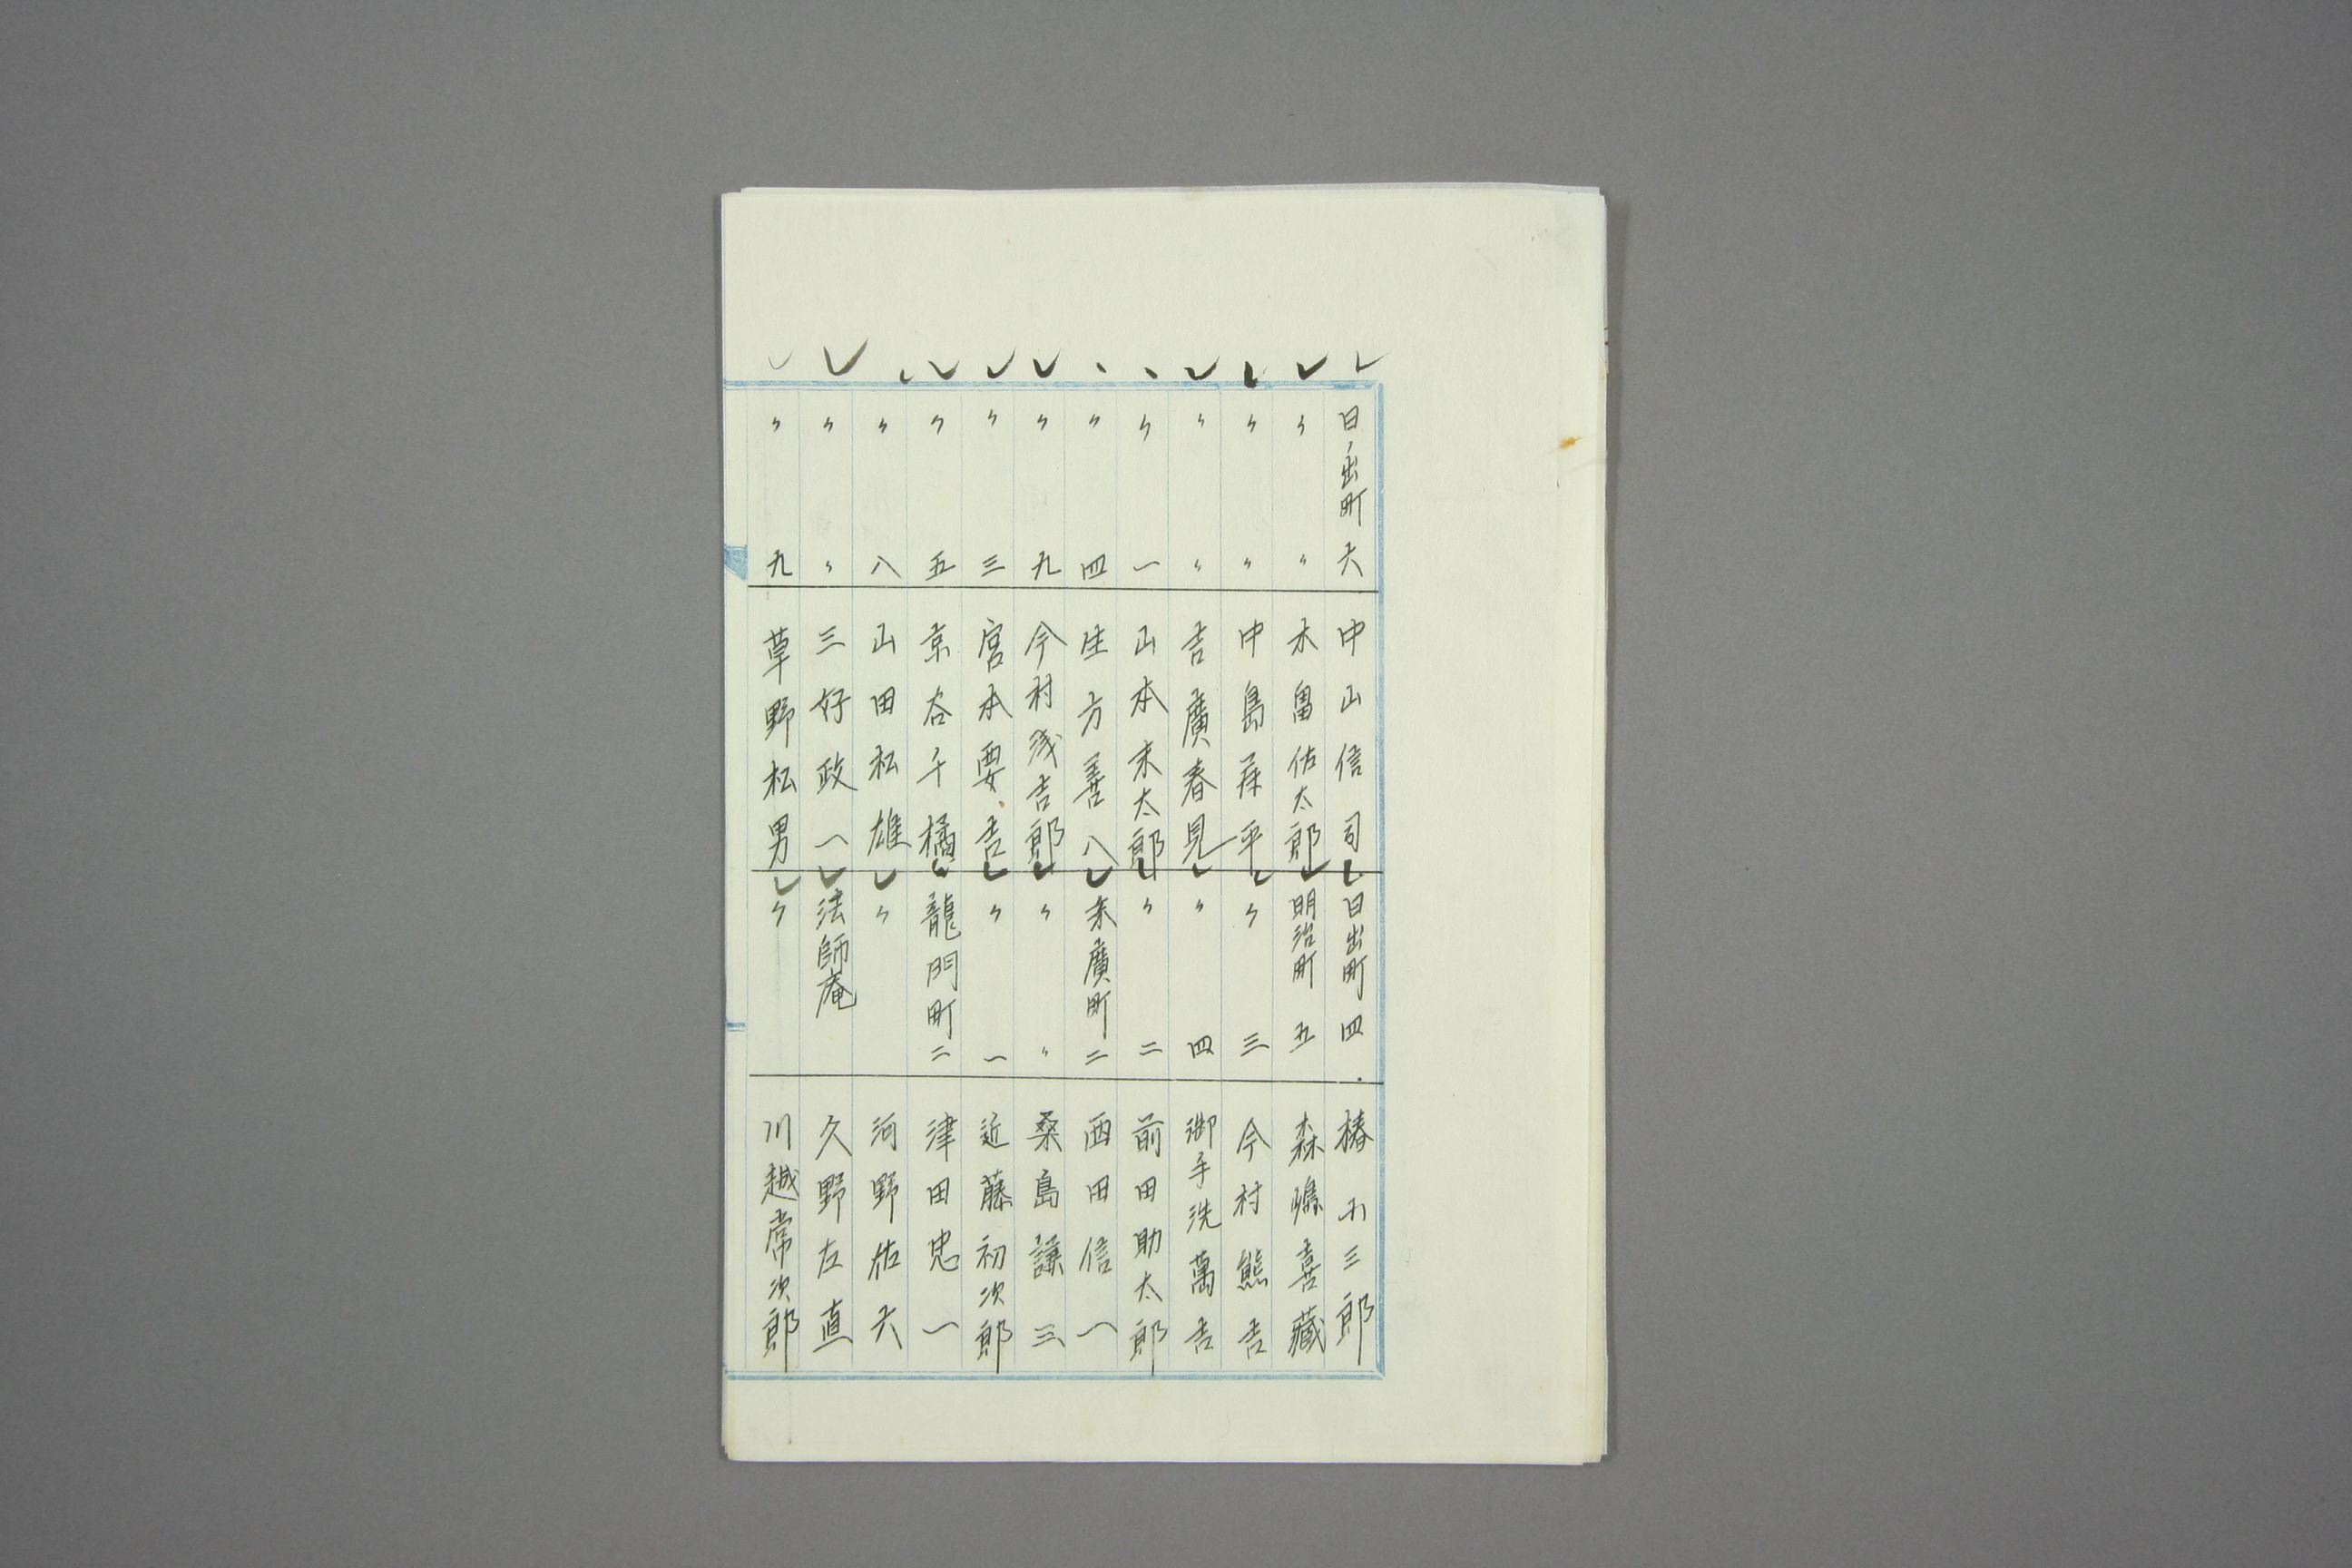 日ノ出町 六 中山信司 日出町 四 椿 十三郎
〃 〃 木畠佑太郎 明治町 五 森嶋喜藏
〃 〃 中島 平 〃 三 今村熊吉
〃 〃 吉廣春見 〃 四 御手洗萬吉
〃 一 山本末太郎 〃 二 前田助太郎
〃 四 生方善八 末廣町 二 西田信一
〃 九 今村浅吉郎 〃 〃 桑島謙三
〃 三 宮本要吉 〃 一 近藤初次郎
〃 五 京谷千橘 龍門町 二 津田忠一
〃 八 山田松雄 〃 河野佑六
〃 〃 三好政一 法師庵 久野左直
〃 九 草野松男 〃 川越常次郎